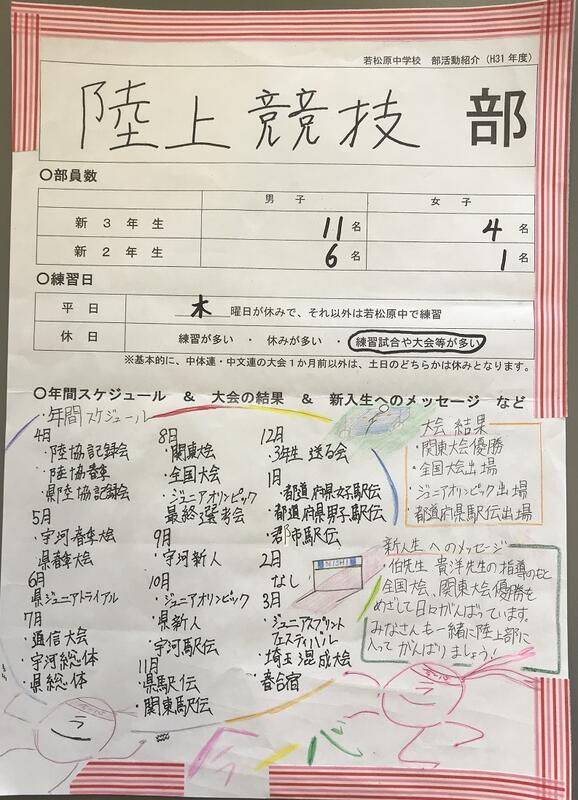 若松原中学校 部活動紹介（H31年度）
陸上競技 部
○部員数
男子 女子
新3年生 11名 4名
新2年生 6名 1名
○練習日
平日 木 曜日が休みで、それ以外は若松原中で練習
休日 練習が多い ・ 休みが多い ・ 練習試合や大会等が多い
※基本的に、中体連・中文連の大会1か月前以外は、土日のどちらかは休みとなります。
○年間スケジュール ＆ 大会の結果 ＆ 新入生へのメッセージ など
・年間スケジュール
4月
・陸協記録会
・陸協春季
・県陸協記録会
5月
・宇河春季大会
・県春季大会
6月
・県ジュニアトライアル
7月
・通信大会
・宇河総体
・県総体
8月
・関東大会
・全国大会
・ジュニアオリンピック
最終選考会
9月
・宇河新人
10月
・ジュニアオリンピック
・県新人
・宇河駅伝
11月
・県駅伝
・関東駅伝
12月
・3年生送る会
1月
・都道府県女子駅伝
・都道府県男子駅伝
・郡市駅伝
2月
なし
3月
・ジュニアスプリント
フェスティバル
・埼玉混成大会
・春合宿
大会結果
・関東大会優勝
・全国大会出場
・ジュニアオリンピック出場
・都道府県駅伝出場
新入生へのメッセージ
・伯先生、貴洋先生の指導のもと
全国大会、関東大会優勝を
めざして日々がんばっています。
みなさんも一緒に陸上部に
入ってがんばりましょう！